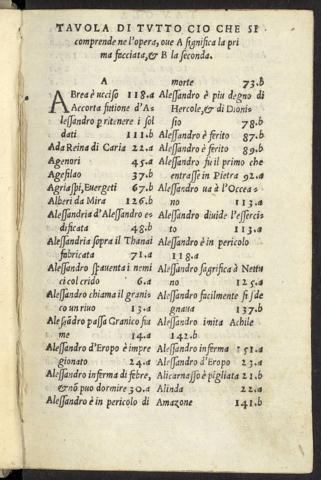 TAVOLA DI TVTTO CIO CHE SI
comprende ne l'opera, oue A significa la pri
ma facciata, & B la seconda.
A
ABrea è ucciso 118.a
Accorta fitione d'A-
lessandro p ritenere i sol
dati 111.b
Ada Reina di Caria 22.a
Agenori 45.a
Agesilao 37.b
Agriaspi, Euergeti 67.b
Alberi da Mira 126.b
Alessandria d'Alessandro e-
dificata 48.b
Alessandria sopra il Thanai
fabricata 71.a
Alessandro spauenta i nemi
ci col crido 6.a
Alessandro chiama il granis
co un riuo 13.a
Alessandro passa Granico fiu
me 14.a
Alessandro d'Eropo è impre
gionato 24.a
Alessandro inferma di febre,
& nō puo dormire 30.a
Alessandro è in pericolo di
morte 73.b
Alessandro è piu degno di
Hercole, & di Dioni-
sio 78.b
Alessandro è ferito 87.b
Alessandro è ferito 89.b
Alessandro fu il primo che
entrasse in Pietra 92.a
Alessandro ua à l'Occea-
no 113.a
Alessandro diuide l'esserci-
to 113.a
Alessandro è in pericolo
118.a
Alessandro sagrifica à Nettu
no 125.a
Alessandro facilmente si sde
gnaua 137.b
Alessandro imita Achile
142.b
Alessandro inferma 151.a
Alessandro d'Eropo 23.a
Alicarnasso è pigliata 21.b
Alinda 22.a
Amazone 141.b